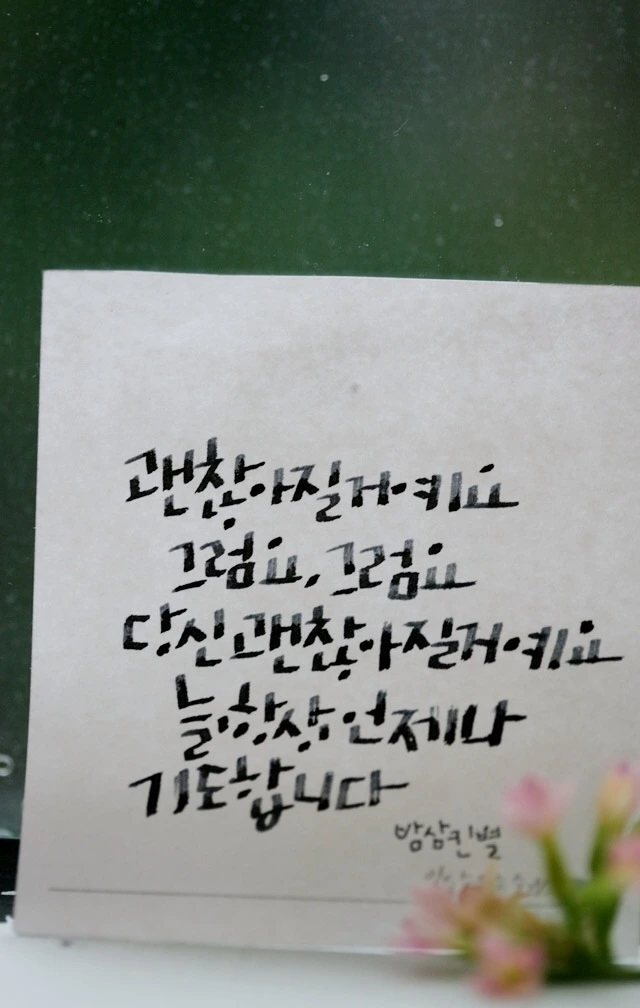 괜찮아질거예요
그럼요, 그럼요
당신 괜찮아질거예요
늘 항상 언제나
기도합니다
밤삼킨별